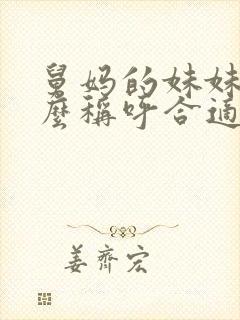 舅妈的妹妹
麼稱呼合適
姜齊宏